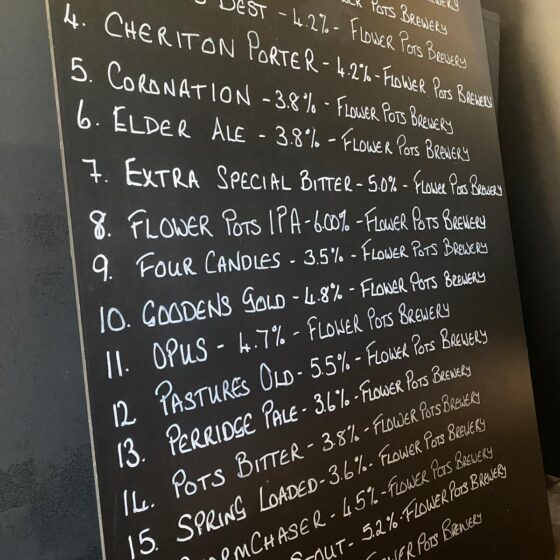 Pots Brewery
Best - 4.2% - Flower Pots Brewery
4. Cheriton Porter - 4.2% - Flower Pots Brewery
5. Coronation - 3.8% - Flower Pots Brewery
6. Elder Ale - 3.8% - Flower Pots Brewery
7. Extra Special Bitter - 5.0% - Flower Pots Brewery
8. Flower Pots IPA - 6.00% - Flower Pots Brewery
9. Four Candles - 3.5% - Flower Pots Brewery
10. Goodens Gold - 4.8% - Flower Pots Brewery
11. Opus - 4.7% - Flower Pots Brewery
12 Pastures Old - 5.5% - Flower Pots Brewery
13. Perridge Pale - 3.6% - Flower Pots Brewery
14. Pots Bitter - 3.8% - Flower Pots Brewery
15. Spring Loaded - 3.6% - Flower Pots Brewery
ormChaser - 4.5% - Flower Pots Brewery
Stout - 5.2% - Flower Pots Brewery
Pots Brewery